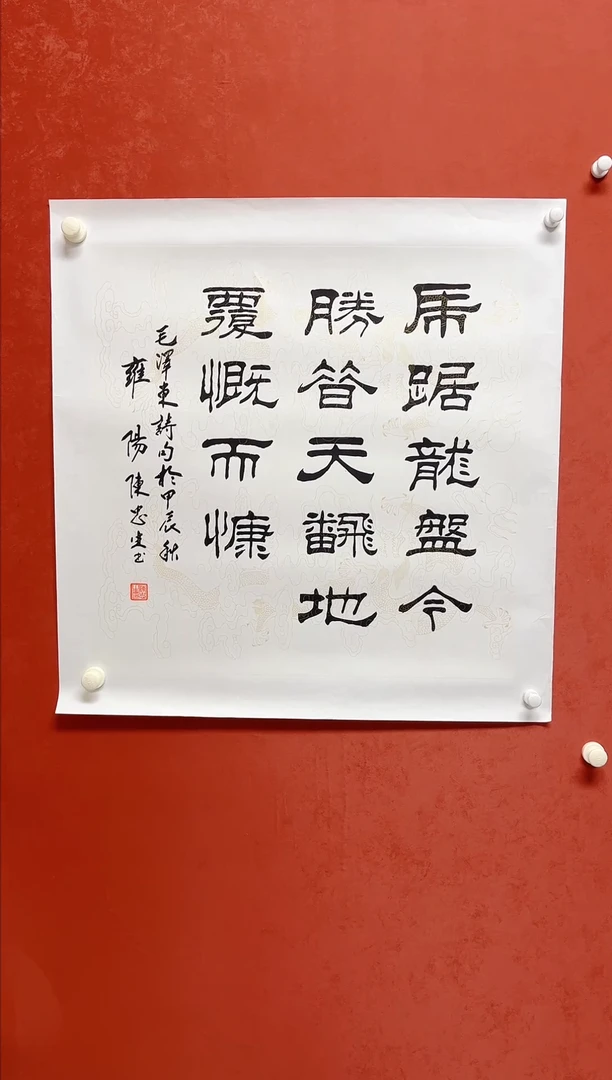 虎踞龍盤今
勝昔天翻地
覆慨而慷
毛澤東詩句於甲辰秋
雍陽陳忠生书